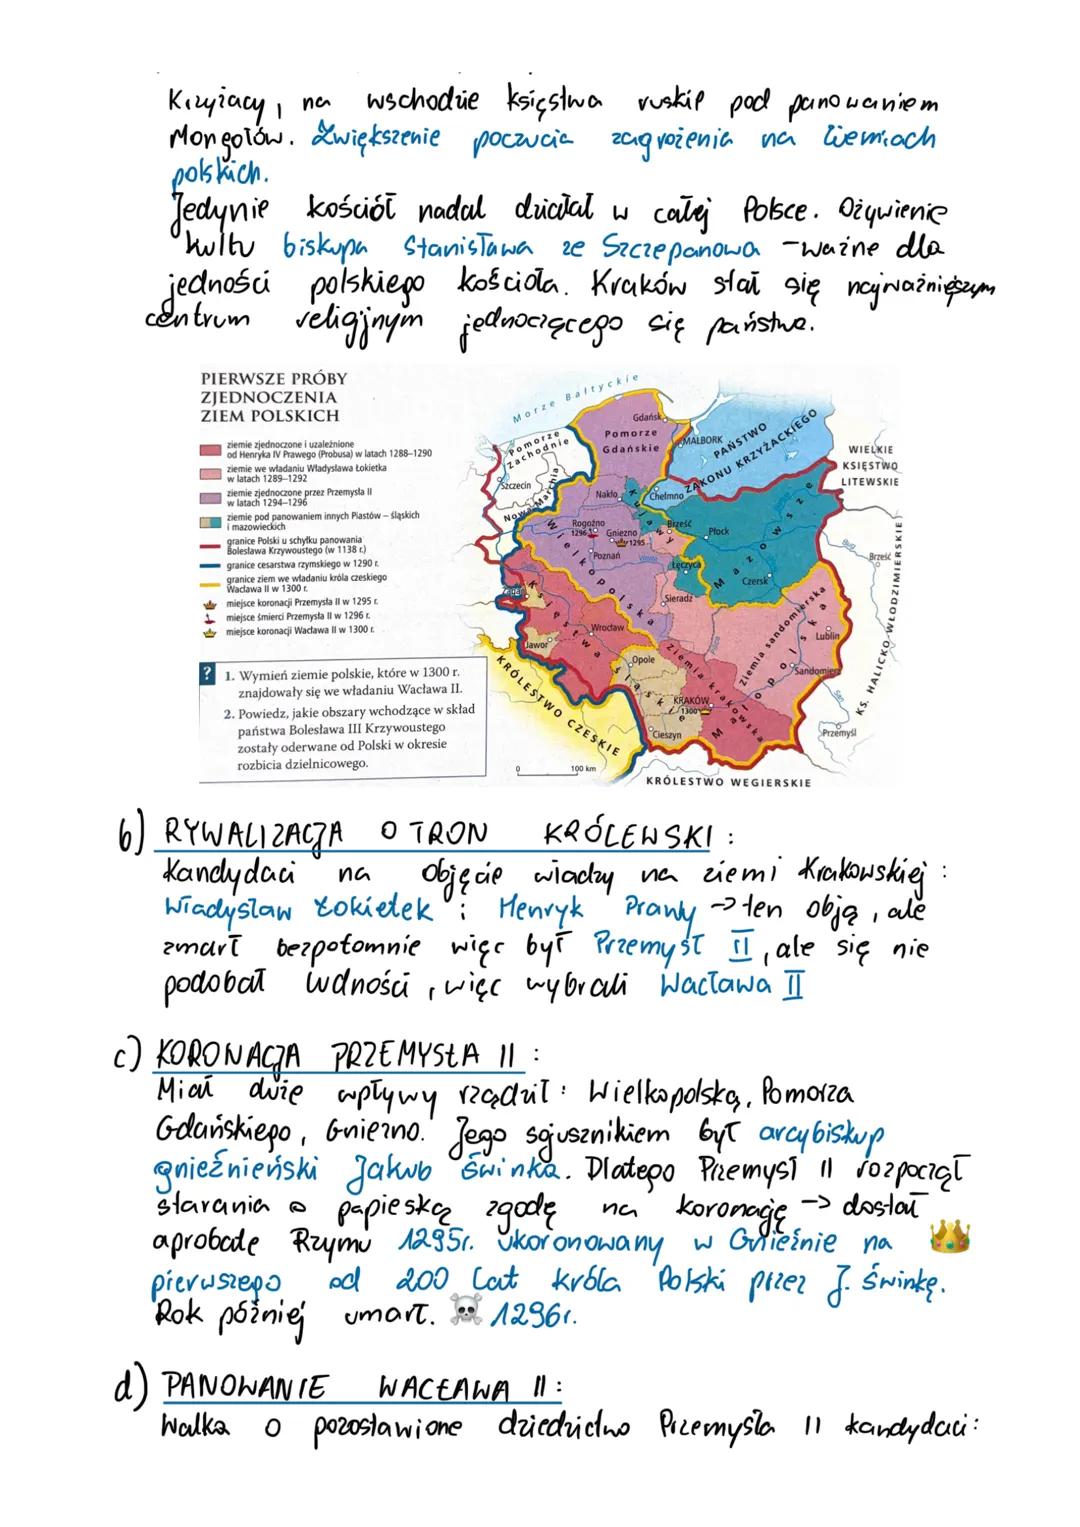 Krzyżacy, na wschodzie księstwa ruskie pod panowaniem
Mongołów. Zwiększenie poczucia zagrożenia na ziemiach
polskich.
Jedynie kościół nadal działał w całej Polsce. Ożywienie
kultu biskupa Stanisława ze Szczepanowa - ważne dla
jedności polskiego kościoła. Kraków stał się najważniejszym
centrum religijnym jednoczącego się państwa.
PIERWSZE PRÓBY
ZJEDNOCZENIA
ZIEM POLSKICH
ziemie zjednoczone i uzależnione
od Henryka IV Prawego (Probusa) w latach 1288–1290
ziemie we władaniu Władysława Łokietka
w latach 1289–1292
ziemie zjednoczone przez Przemysła II
w latach 1294–1296
ziemie pod panowaniem innych Piastów – śląskich
i mazowieckich
granice Polski u schyłku panowania
Bolesława Krzywoustego (w 1138 r.)
granice cesarstwa rzymskiego w 1290 r.
granice ziem we władaniu króla czeskiego
Wacława II w 1300 r.
miejsce koronacji Przemysła II w 1295 r.
miejsce śmierci Przemysła II w 1296 r.
miejsce koronacji Wacława II w 1300 r.
?
1. Wymień ziemie polskie, które w 1300 r.
znajdowały się we władaniu Wacława II.
2. Powiedz, jakie obszary wchodzące w skład
państwa Bolesława III Krzywoustego
zostały oderwane od Polski w okresie
rozbicia dzielnicowego.
Morze Bałtyckie
Gdańsk
Pomorze
Gdańskie
MALBORK
PAŃSTWO
ZAKONU KRZYŻACKIEGO
WIELKIE
KSIĘSTWO
LITEWSKIE
Pomorze
Zachodnie
Szczecin
Nowa Marchia
Nakło
Chełmno
Kujawy
Rogoźno
1296
Gniezno
1295
Brześć
Płock
Mazowsze
Bug
Brześć
Poznań
Wielkopolska
Łęczyca
Czersk
Sieradz
Żagań
Księstwa śląskie
Wrocław
Jawor
Opole
Ziemia krakowska
Ziemia sandomierska
Małopolska
Lublin
Sandomierz
KRAKÓW
1300
Cieszyn
San
Przemyśl
KS. HALICKO-WŁODZIMIERSKIE
KRÓLESTWO CZESKIE
0 100 km
KRÓLESTWO WĘGIERSKIE
b) RYWALIZACJA O TRON KRÓLEWSKI:
Kandydaci na objęcie władzy na ziemi Krakowskiej:
Władysław Łokietek i Henryk Prawy -> ten objął, ale
zmarł bezpotomnie więc był Przemysł II, ale się nie
podobał ludności, więc wybrali Wacława II
c) KORONACJA PRZEMYSŁA II:
Miał duże wpływy rządził: Wielkopolską, Pomorza
Gdańskiego, Gniezno. Jego sojusznikiem był arcybiskup
gnieźnieński Jakub Świnka. Dlatego Przemysł II rozpoczął
starania o papieską zgodę na koronację -> dostał
aprobatę Rzymu 1295r. ukoronowany w Gnieźnie na 👑
pierwszego od 200 lat króla Polski przez J. Świnkę.
Rok później umarł. ☠ 1296r.
d) PANOWANIE WACŁAWA II:
Walka o pozostawione dziedzictwo Przemysła II kandydaci: